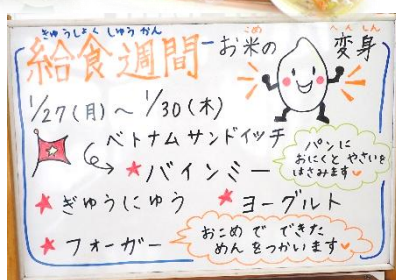 きゅうしょくしゅうかん
給食週間
こめ
お米の
へんしん
変身
1/27(月)～1/30(木)
ベトナムサンドイッチ
★バインミー
パンに
おにくとやさいを
はさみます
★ぎゅうにゅう
★ヨーグルト
★フォーガー
おこめでできた
めんをつかいます